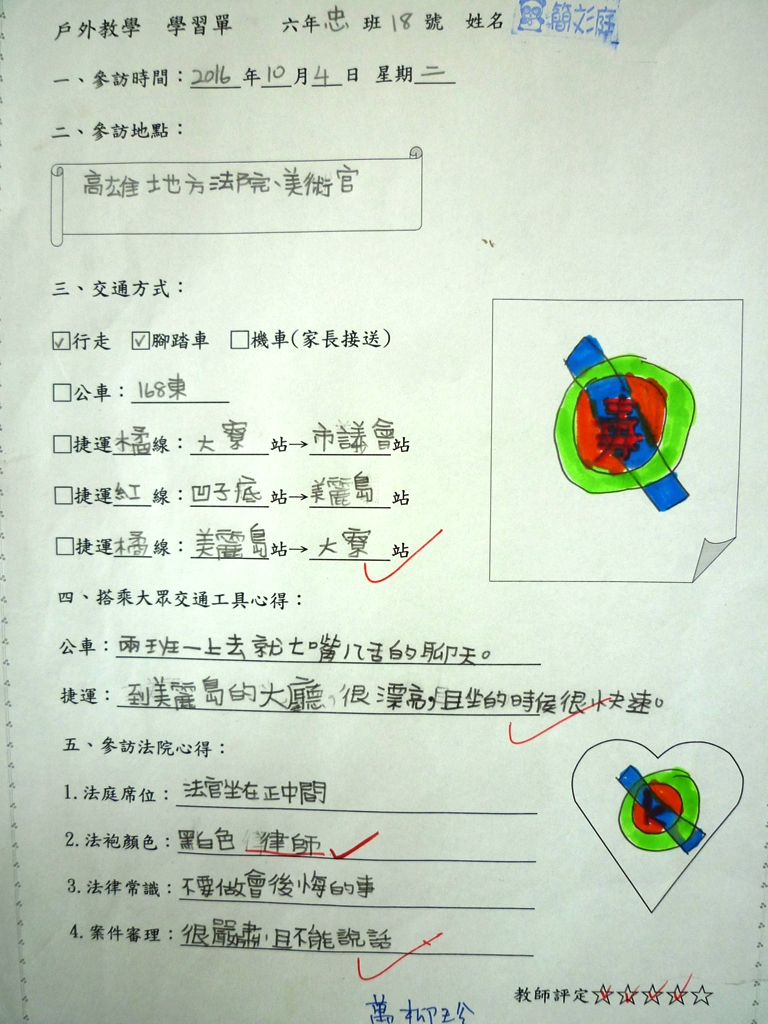 戶外教學 學習單 六年忠班18號 姓名 簡彣庭
一、參訪時間：2016年10月4日 星期二
二、參訪地點：
高雄地方法院、美術官
三、交通方式：
☑行走 ☑腳踏車 □機車(家長接送)
□公車：168東
□捷運橘線：大寮站→市議會站
□捷運紅線：凹子底站→美麗島站
□捷運橘線：美麗島站→大寮站
四、搭乘大眾交通工具心得：
公車：兩班一上去就七嘴八舌的聊天。
捷運：到美麗島的大廳,很漂亮,且坐的時候很快速。
五、參訪法院心得：
1.法庭席位：法官坐在正中間
2.法袍顏色：黑白色 律師
3.法律常識：不要做會後悔的事
4.案件審理：很嚴肅,且不能說話
教師評定☆☆☆☆☆